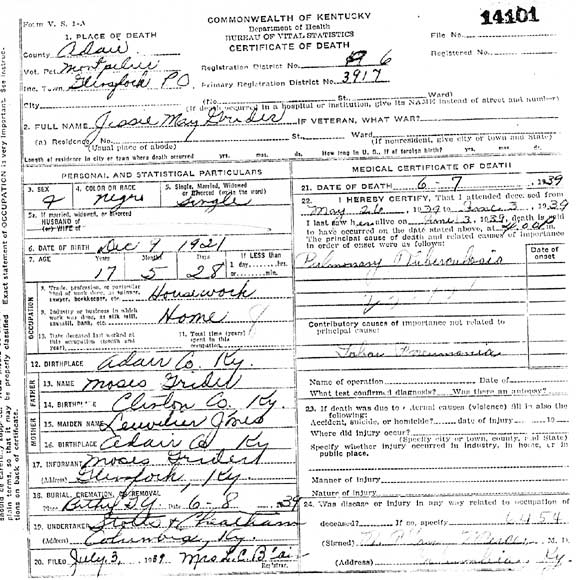 Form V. S. 1-A
COMMONWEALTH OF KENTUCKY
Department of Health
BUREAU OF VITAL STATISTICS
CERTIFICATE OF DEATH
File No. 14101
Registered No.
1. PLACE OF DEATH
County Adair
Vot. Pct. Montpelier
Inc. Town Glensfork PO
Registration District No. 6
Primary Registration District No. 3917
City (No. St. Ward)
(If death occurred in a hospital or institution, give its NAME instead of street and number)
2. FULL NAME Jessie May IF VETERAN, WHAT WAR?
(a) Residence No. St. Ward
(Usual place of abode) (If nonresident, give city or town and State)
Length of residence in city or town where death occurred yrs. mos. ds. How long in U. S., if of foreign birth? yrs. mos. ds.
PERSONAL AND STATISTICAL PARTICULARS
3. SEX
4. COLOR OR RACE negro
5. Single, Married, Widowed or Divorced (write in the word) Single
5a. If married, widowed, or divorced
HUSBAND of
(or) WIFE of
6. DATE OF BIRTH Dec 9 1921
7. AGE Years Months Days If LESS than
17 5 28 1 day, hrs.
or min.
OCCUPATION
8. Trade, profession, or particular kind of work done, as spinner, sawyer, bookkeeper, etc. Housework
9. Industry or business in which work was done, as silk mill, sawmill, bank, etc. Home
10. Date deceased last worked at this occupation (month and year)
11. Total time (years) spent in this occupation
12. BIRTHPLACE Adair Co. Ky.
FATHER
13. NAME Moses
14. BIRTHPLACE Clinton Co. Ky.
MOTHER
15. MAIDEN NAME Jones
16. BIRTHPLACE Adair Co Ky
17. INFORMANT Moses
(Address) Glensfork, Ky.
18. BURIAL, CREMATION, OR REMOVAL
Place Date 6-8 39
19. UNDERTAKER Stotts & Cheatham
(Address) Columbia, Ky.
20. FILED July 3, 1939 Mrs L.C.
Registrar.
MEDICAL CERTIFICATE OF DEATH
21. DATE OF DEATH 6 7 1939
22. I HEREBY CERTIFY, That I attended deceased from
May 26 1939 to June 3, 1939
I last saw her alive on June 3, 1939, death is said
to have occurred on the date stated above, at
The principal cause of death and related causes of importance
in order of onset were as follows:
Date of onset
Pulmonary Tuberculosis
Contributory causes of importance not related to
principal cause:
Lobar Pneumonia
Name of operation Date of
What test confirmed diagnosis? Was there an autopsy?
23. If death was due to external causes (violence) fill in also the
following:
Accident, suicide, or homicide? date of injury 19
Where did injury occur?
(Specify city or town, county, and State)
Specify whether injury occurred in industry, in home, or in
public place.
Manner of injury
Nature of injury
24. Was disease or injury in any way related to occupation of
deceased? If so, specify
(Signed)
(Address) Columbia, Ky.